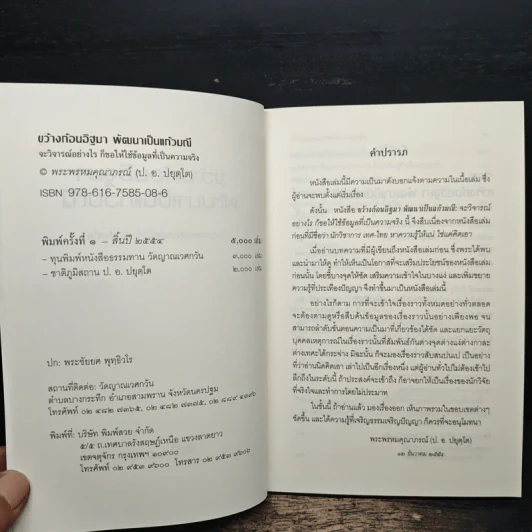 ขว้างก้อนอิฐมา พัฒนาเป็นแก้วมณี
จะวิจารณ์อย่างไร ก็ขอให้ใช้ข้อมูลที่เป็นความจริง
© พระพรหมคุณาภรณ์ (ป. อ. ปยุตฺโต)
ISBN 978-616-7585-08-6
พิมพ์ครั้งที่ ๑ – สิ้นปี ๒๕๕๔ ๕,๐๐๐ เล่ม
- ทุนพิมพ์หนังสือธรรมทาน วัดญาณเวศกวัน ๓,๐๐๐ เล่ม
- ชาติภูมิสถาน ป. อ. ปยุตฺโต ๒,๐๐๐ เล่ม
ปก: พระชัยยศ พุทฺธิวโร
สถานที่ติดต่อ: วัดญาณเวศกวัน
ตำบลบางกระทึก อำเภอสามพราน จังหวัดนครปฐม
โทรศัพท์ ๐๒ ๔๘๒ ๗๓๖๕, ๐๒ ๔๘๒ ๗๓๗๕, ๐๒ ๘๘๙ ๔๓๙๖
พิมพ์ที่: บริษัท พิมพ์สวย จำกัด
๕/๕ ถ.เทศบาลรังสฤษฎ์เหนือ แขวงลาดยาว
เขตจตุจักร กรุงเทพฯ ๑๐๙๐๐
โทรศัพท์ ๐๒ ๙๕๓ ๙๖๐๐ โทรสาร ๐๒ ๙๕๓ ๙๖๐๖
คำปรารภ
หนังสือเล่มนี้มีความเป็นมาดังบอกแจ้งตามความในเนื้อเล่ม ซึ่ง
ผู้อ่านจะพบตั้งแต่เริ่ม
ดังนั้น หนังสือ ขว้างก้อนอิฐมา พัฒนาเป็นแก้วมณี: จะวิจารณ์
อย่างไร ก็ขอให้ใช้ข้อมูลที่เป็นความจริง นี้ จึงสืบเนื่องจากหนังสือเล่ม
ก่อนที่มีชื่อว่า นักวิชาการ เทศ-ไทย หาความรู้ให้แน่ ใช่แค่คิดเอา
เมื่ออ่านบทความที่มีผู้เขียนถึงหนังสือเล่มก่อน ซึ่งพระได้พบ
และนำมาให้ดู ทำให้เห็นเป็นโอกาสที่จะเสริมประโยชน์ของหนังสือเล่ม
ก่อนนั้น โดยชี้บางจุดให้ชัด เสริมความเข้าใจในบางแง่ และเพิ่มขยาย
ความรู้ที่ประเทืองปัญญา จึงทำขึ้นมาเป็นหนังสือเล่มนี้
อย่างไรก็ตาม การที่จะเข้าใจเรื่องราวทั้งหมดอย่างทั่วตลอด
จะต้องตามดูหรือสืบค้นข้อมูลของเรื่องราวนั้นอย่างเพียงพอ จน
สามารถลำดับขั้นตอนความเป็นมาที่เกี่ยวข้องได้ชัด และแยกแยะวัตถุ
บุคคลเหตุการณ์ในเรื่องราวนั้นที่สัมพันธ์กันต่างจุดต่างแง่ต่างกาละ
ต่างเทศะได้กระจ่าง มิฉะนั้น ก็จะมองเรื่องราวสับสนปนเป เป็นอย่าง
ที่ว่าอ่านนิดคิดเอา เล่าไปเนื้อความคลาดเคลื่อน แต่ผู้อ่านทั่วไปไม่ต้องเข้าไป
ลึกถึงในระดับนี้ ถ้าประสงค์จะเข้าถึง ก็อาจยกให้เป็นเรื่องของนักวิจัย
ที่จริงใจและทำการโดยไม่ประมาท
ในขั้นนี้ ถ้าอ่านแล้ว มองเรื่องออก เห็นภาพรวมในขอบเขตต่างๆ
ชัดขึ้น และได้ความรู้ที่เจริญธรรมเจริญปัญญา ก็ควรที่จะอนุโมทนา
พระพรหมคุณาภรณ์ (ป. อ. ปยุตฺโต)
๑๓ ธันวาคม ๒๕๕๔